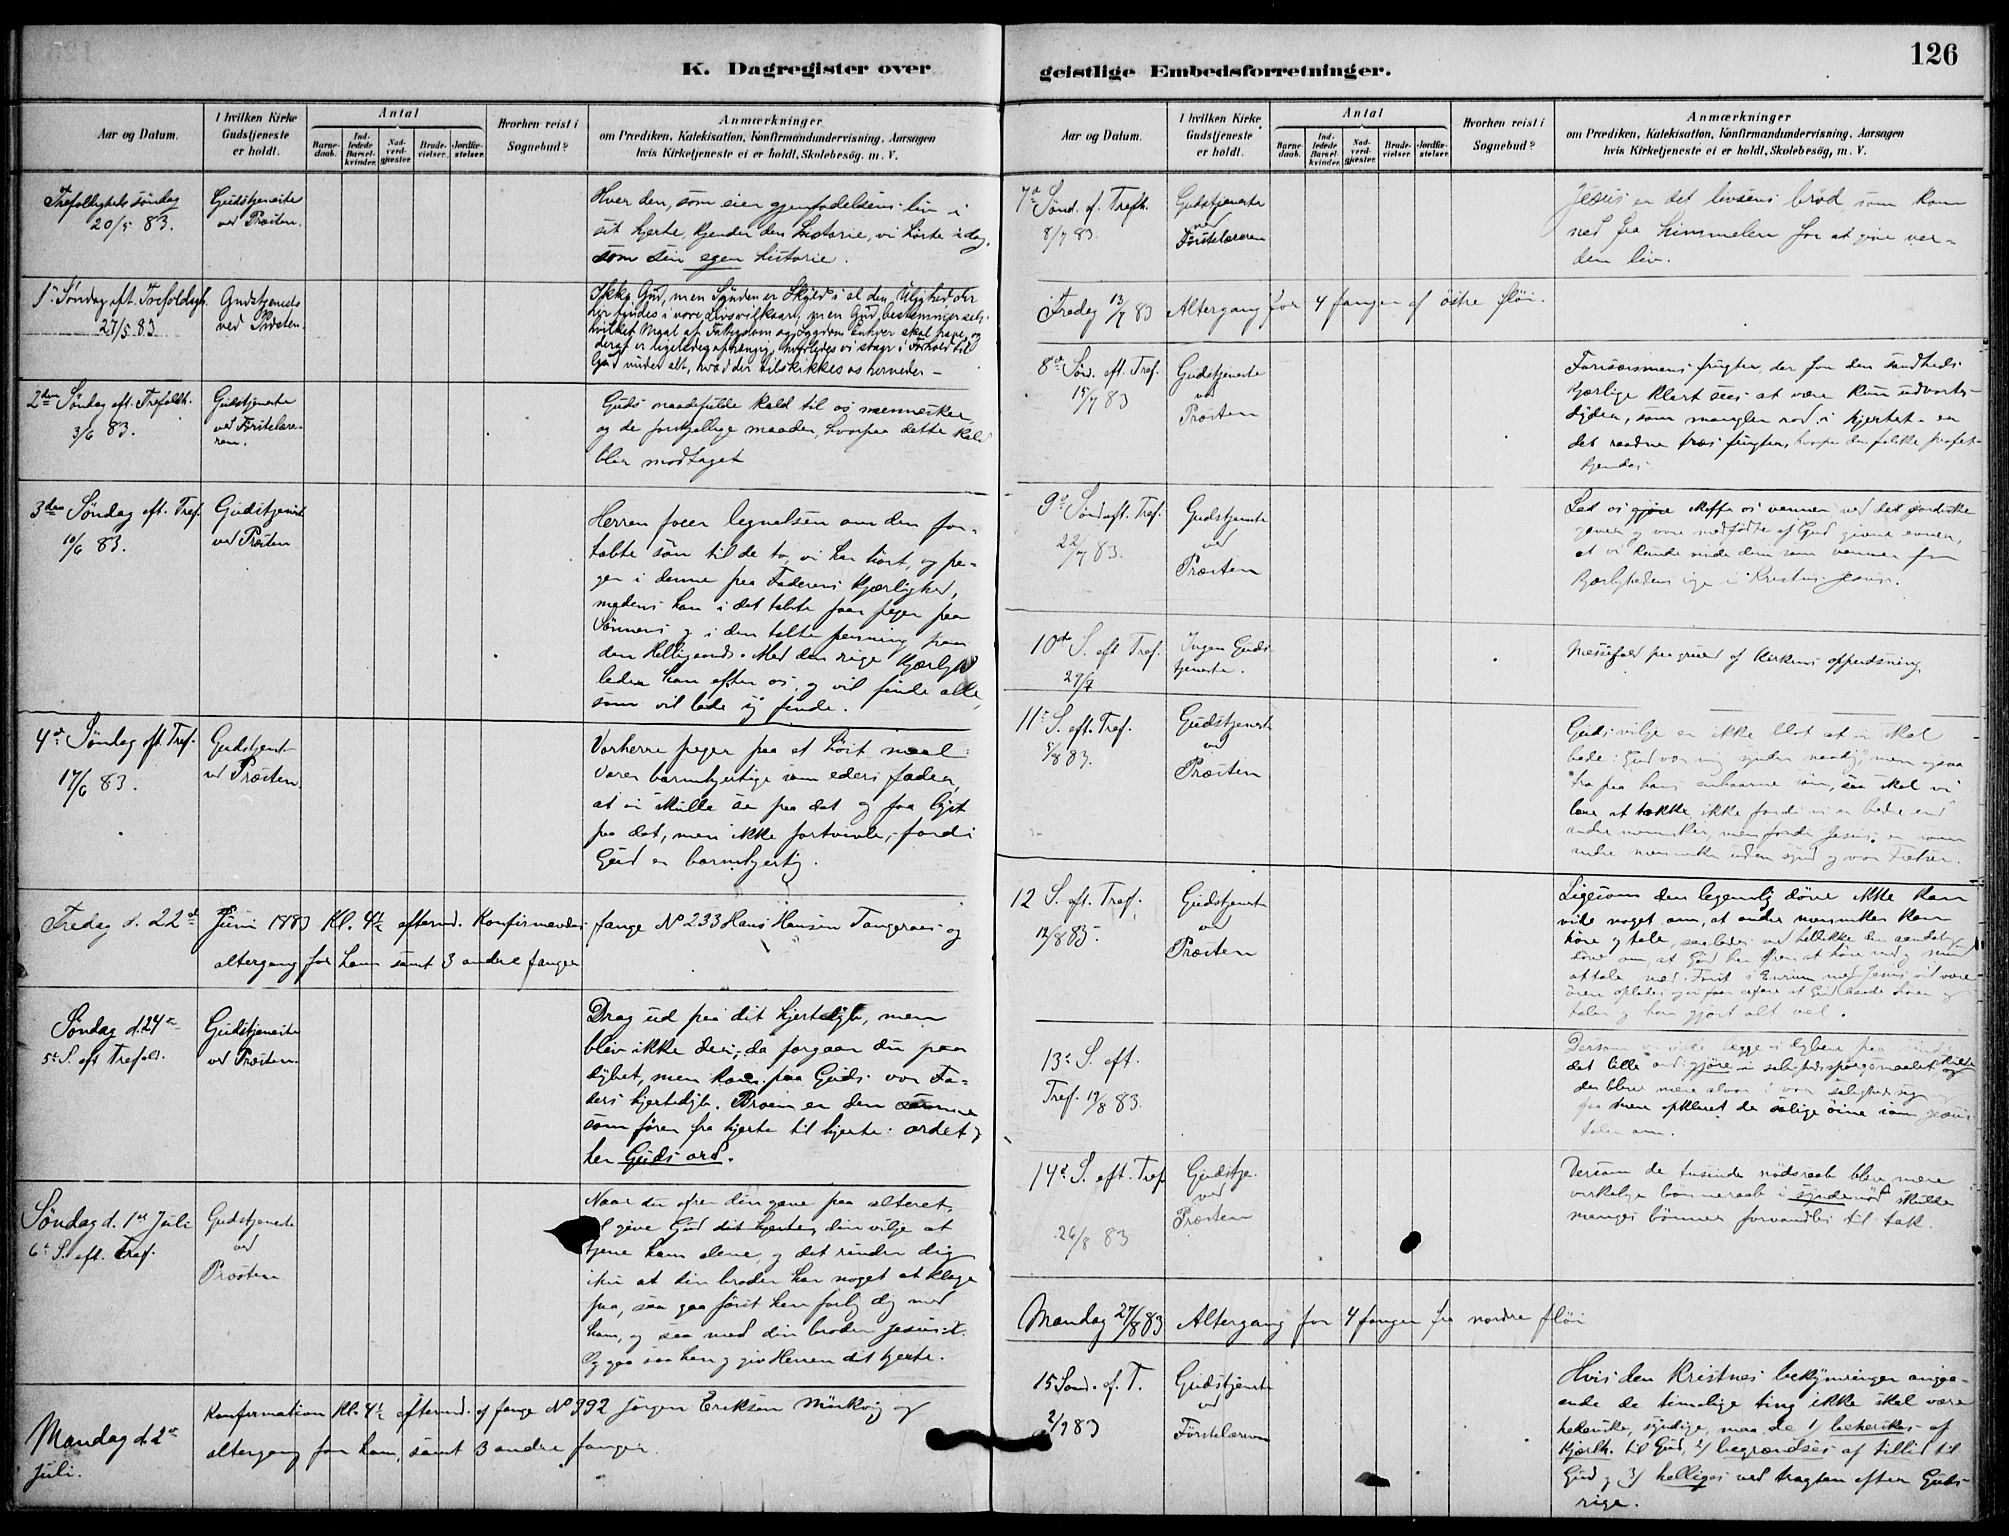 K. Dagregister over
Aar og Datum.
I hvilken Kirke Gudstjeneste er holdt.
Antal
Barnedaab.
Indledede Barselkvinder.
Nadverdgjæster.
Brudevielser.
Jordfæstelser.
Hvorhen reist i Sognebud?
Anmærkninger
om Prædiken, Katekisation, Konfirmandundervisning, Aarsagen
hvis Kirketjeneste ei er holdt, Skolebesøg, m. V.
Trefoldigheds søndag
20/5 83.
Gudstjeneste
ved Præsten.
Hver den, som eier gjenfødelsens liv i
sit hjerte, kjender den historie, vi hørte idag,
som sin egen historie.
1ste Søndag eft. Trefoldigh.
27/5 83
Gudstjeneste
ved Præsten.
Ikke Gud, men Synden er Skyld i al den Ulighed, der
her findes i vore Livsvilkaar, men Gud bestemmer selv
hvilket Maal af Fattigdom og Sygdom Enhver skal have, og
deraf er ligeledes afhængig, hvorledes vi staar i Forhold til
Gud under alt, hvad der tilskikkes os herneder –
2den Søndag eft. Trefoldh.
3/6 83.
Gudstjeneste
ved Førstelære-
ren.
Guds naadefulde kald til os mennesker
og de forskjellige maader, hvorpaa dette kald
blir modtaget
3den Søndag eft. Tref.
10/6 83.
Gudstjeneste
ved Præsten
Herren føier lignelsen om den for-
tabte søn til de to, vi har hørt, og pe-
ger i denne paa Faderens kjærlighed,
medens han i det tabte faar peger paa
Sønnens og i den tabte penning paa
den Helligaands. Med den rige kjærlighed
leder han efter os, og vil finde alle,
som vil lade sig finde.
4de Søndag eft. Tref.
17/6 83.
Gudstjenest
ved Præsten
Vorherre peger paa et høit maal:
Vorer barmhjertige som eders fader,
at vi skulle se paa det og faa lyst
paa det, men ikke fortvivle, fordi
Gud er barmhjertig.
Fredag d. 22de Juni 1883 Kl. 4½ efterm. Konfirmeredes fange No 233 Hans Hansen Tangeraas og
altergang for ham samt 3 andre fanger
Søndag d. 24de
5te S. eft Trefold.
Gudstjeneste
ved Præsten.
Drag ud paa dit hjertedyb, men
bliv ikke der, da forgaar du paa
dybet, men kom paa Guds vor Fa-
ders hjertedyb. Broen er den samme
som fører fra hjerte til hjerte: ordet,
her Guds ord.
Søndag d. 1ste Juli
6te S. eft. Tref.
Gudstjeneste
ved
Præsten
Naar du ofrer din gave paa alteret,
give Gud dit hjerte, din vilje at
tjene ham alene, og det rinder dig
ihu at din broder har noget at klage
paa, saa gaa først hen forlig dig med
ham, og saa med din broder Jesus X.
Og gaa saa hen og giv Herren dit hjerte.
Mandag d. 2de
Juli.
Konfirmation Kl. 4½ efterm. af fange No 392 Jørgen Eriksen Mörkvig og
altergang for ham, samt 3 andre fanger.
geistlige Embedsforretninger.
126
Aar og Datum.
I hvilken Kirke Gudstjeneste er holdt.
Antal
Barnedaab.
Indledede Barselkvinder.
Nadverdgjæster.
Brudevielser.
Jordfæstelser.
Hvorhen reist i Sognebud?
Anmærkninger
om Prædiken, Katekisation, Konfirmandundervisning, Aarsagen
hvis Kirketjeneste ei er holdt, Skolebesög, m. V.
7de Sönd. ef. Trefh.
8/7 83.
Gudstjeneste
ved
Førstelæreren
Jesus er det livsens brød, som kom
ned fra himmelen for at give ver-
den liv.
Fredag 13/7 83 Altergang for 4 fanger af østre fløi.
8de Sön. eft. Tref.
15/7 83
Gudstjeneste
ved
Præsten
Farisæismens frugter, der for den sandheds
kjærlige klart sees at være kun udvortes
dyder, som mangler rod i hjertet – er
det raadne træs frugter, hvorpaa den falske profet
kjendes.
9de Sönd eft. Tref.
22/7 83.
Gudstjeneste
ved
Præsten
Lad os gjøre skaffe os venner ved det jordiske
gaver og vore medfødte af Gud givne evner,
at vi kunde vinde dem som venner for
kjærlighedens rige i Kristus Jesus.
10de S. eft Tref.
29/7
Ingen Guds-
tjeneste.
Messefald paa grund af kirkens oppudsning.
11te S. eft. Tref.
5/8 83.
Gudstjeneste
ved
Præsten
Guds vilje er ikke blot at vi skal
bede: Gud vær mig synder naadig, men ogsaa
tro paa hans enbaarne søn, saa skal vi
lære at takke, ikke fordi vi er bedre end
andre mennesker, men fordi Jesus er som
andre mennesker uden synd og vor Frelser.
12 S. eft. Tref.
12/8 83.
Gudstjeneste
ved
Præsten
Ligesom den legemlig døve ikke kan
vide noget om, at andre mennesker kan
høre og tale, saaledes ved heller ikke den aandelig
døve om, at Gud har Øren at høre med og mund
at tale med. Først i Enrum med Jesus vil vore
øren oplades og vi faa erfare at Gud baade hører og
taler og han gjort alt vel.
13de S. eft.
Tref. 19/8 83.
Dersom vi vilde lægge
det lille ord gjøre i salighedsspørgsmaalet, vilde
der blive mere alvor i vor salighedssag og
faa mere opklaret de salige øine som Jesus
taler om.
14de S. eft. Tref
26/8 83
Gudstje.
ved
Præsten
Dersom de tusinde nødsraab blev mere
virkelige bønneraab i syndenød skulde
manges bønner forvandles til tak.
Mandag 27/8 83 Altergang for 4 fanger fra nordre fløi
15 Sönd. ef. T.
2/9 83
Gudstjeneste
ved
Førstelæreren
Hvis den Kristnes bekymringer angaa-
ende de timelige ting ikke skal være
hedenske, syndige, maa de 1/ beherskes af
kjærlh. til Gud, 2/ begrændses af tillid til
Gud og 3/ helliges ved tragten efter Guds
rige.